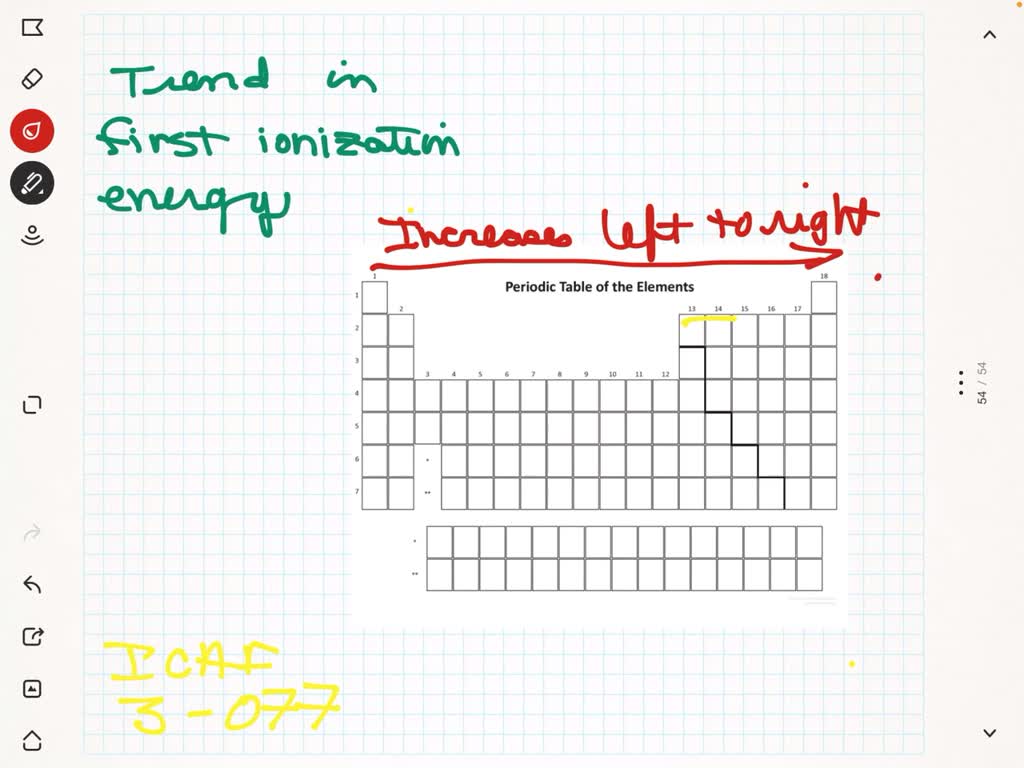 Trend in
first ionization
energy
Increases left to right
1 18
Periodic Table of the Elements
1
2 13 14 15 16 17
2
3
3 4 5 6 7 8 9 10 11 12
4
5
6 *
7 **
*
**
ICAF
3-077
54 / 54